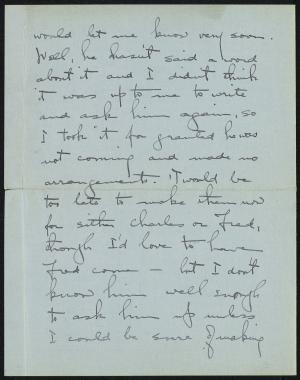 would let me know very soon.
Well, he hasn't said a word
about it and I didn't think
it was up to me to write
and ask him again, so
I took it for granted he was
not coming and made no
arrangements. 'Twould be
too late to make them now
for either Charles or Fred,
though I'd love to have
Fred come — but I don't
know him well enough
to ask him up unless
I could be sure of making